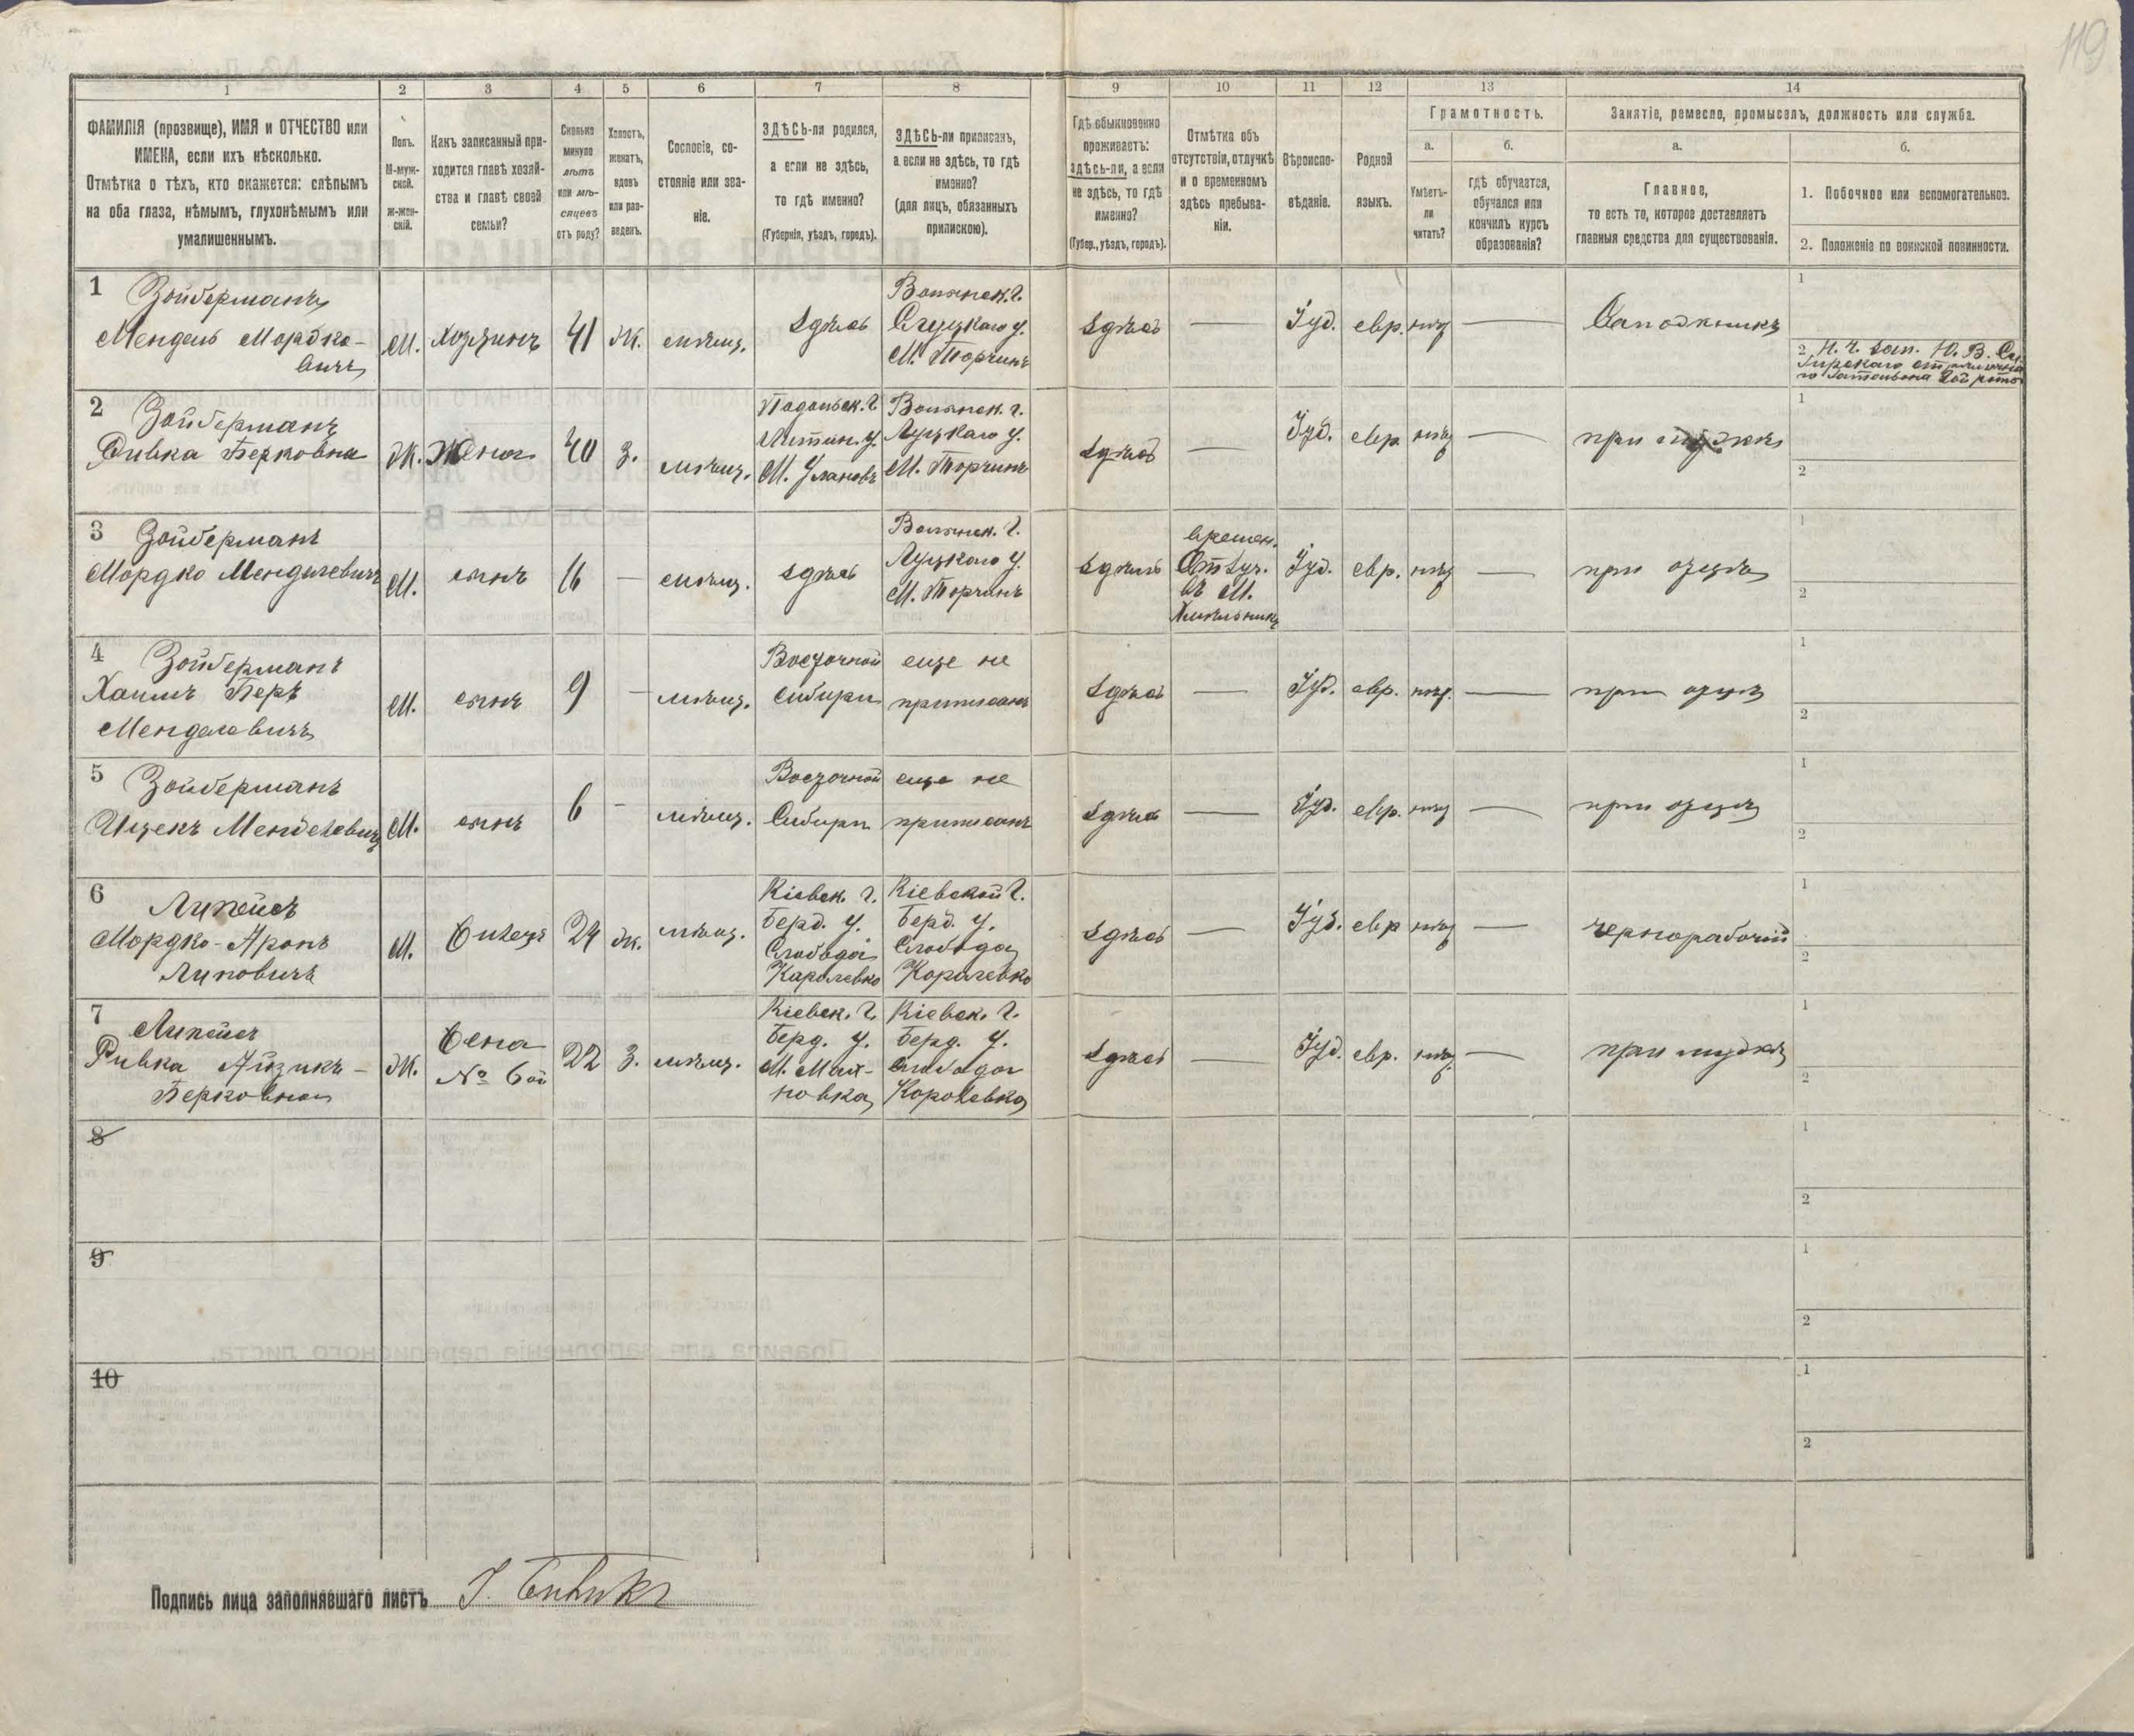 119
1 2 3 4 5 6 7 8 9 10 11 12 13 14
ФАМИЛІЯ (прозвище), ИМЯ и ОТЧЕСТВО или
ИМЕНА, если ихъ нѣсколько.
Отмѣтка о тѣхъ, кто окажется: слѣпымъ
на оба глаза, нѣмымъ, глухонѣмымъ или
умалишеннымъ.
Полъ.
М-муж-
ской.
Ж-жен-
скій.
Какъ записанный при-
ходится главѣ хозяй-
ства и главѣ своей
семьи?
Сколько
минуло
лѣтъ
или мѣ-
сяцевъ
отъ роду?
Холостъ,
женатъ,
вдовъ
или раз-
веденъ.
Сословіе, со-
стояніе или зва-
ніе.
ЗДѢСЬ-ли родился,
а если не здѣсь,
то гдѣ именно?
(Губернія, уѣздъ, городъ).
ЗДѢСЬ-ли приписанъ,
а если не здѣсь, то гдѣ
именно?
(для лицъ, обязанныхъ
припискою).
Гдѣ обыкновенно
проживаетъ:
здѣсь-ли, а если
не здѣсь, то гдѣ
именно?
(Губер., уѣздъ, городъ).
Отмѣтка объ
отсутствіи, отлучкѣ
и о временномъ
здѣсь пребыва-
ніи.
Вѣроиспо-
вѣданіе.
Родной
языкъ.
Грамотность.
а.
Умѣетъ-
ли
читать?
б.
гдѣ обучается,
обучался или
кончилъ курсъ
образованія?
Занятіе, ремесло, промыселъ, должность или служба.
а.
Главное,
то есть то, которое доставляетъ
главныя средства для существованія.
б.
1. Побочное или вспомогательное.
2. Положеніе по воинской повинности.
1 Зойберманъ
Мендель Мордко-
вичъ
М. Хозяинъ 41 Ж. мѣщ. здѣсь
Волынск. г.
Слуцкаго у.
М. Торчинъ
здѣсь — Іуд. евр. нѣт — Сапожникъ
1
2
2 Зойберманъ
Ривка Берковна
Ж. Жена 40 З. мѣщ.
Подольск. г.
Литин. у.
М. Улановъ
Волынск. г.
Луцкаго у.
М. Торчинъ
здѣсь — Іуд. евр. нѣт — при мужѣ
1
2
3 Зойберманъ
Мордко Менделевичъ
М. сынъ 16 — мѣщ. здѣсь
Волынск. г.
Луцкаго у.
М. Торчинъ
здѣсь
времен.
Отлуч.
въ М.
Хмѣльникъ
Іуд. евр. нѣт — при отцѣ
1
2
4 Зойберманъ
Хаимъ Беръ
Менделевичъ
М. сынъ 9 — мѣщ.
Восточной
Сибири
еще не
приписанъ
здѣсь — Іуд. евр. нѣт. — при отцѣ
1
2
5 Зойберманъ
Ицекъ Менделевичъ
М. сынъ 6 — мѣщ.
Восточной
Сибири
еще не
приписанъ
здѣсь — Іуд. евр. нѣт — при отцѣ
1
2
6 Липейсъ
Мордко-Аронъ
Липовичъ
М. 24 Ж. мѣщ.
Кіевск. г.
Берд. у.
Слобода
Каролевко
Кіевской г.
Берд. у.
Слобода
Королевко
здѣсь — Іуд. евр нѣт — чернорабочій
1
2
7 Липейсъ
Ривка Айзикъ-
Берковна
Ж. Жена
№ 6ой
22 З. мѣщ.
Кіевск. г.
Берд. у.
М. Мах-
новка
Кіевск. г.
Берд. у.
Слобода
Королевко
здѣсь — Іуд. евр. нѣт. — при мужѣ
1
2
8
1
2
9
1
2
10
1
2
Подпись лица заполнявшаго листъ